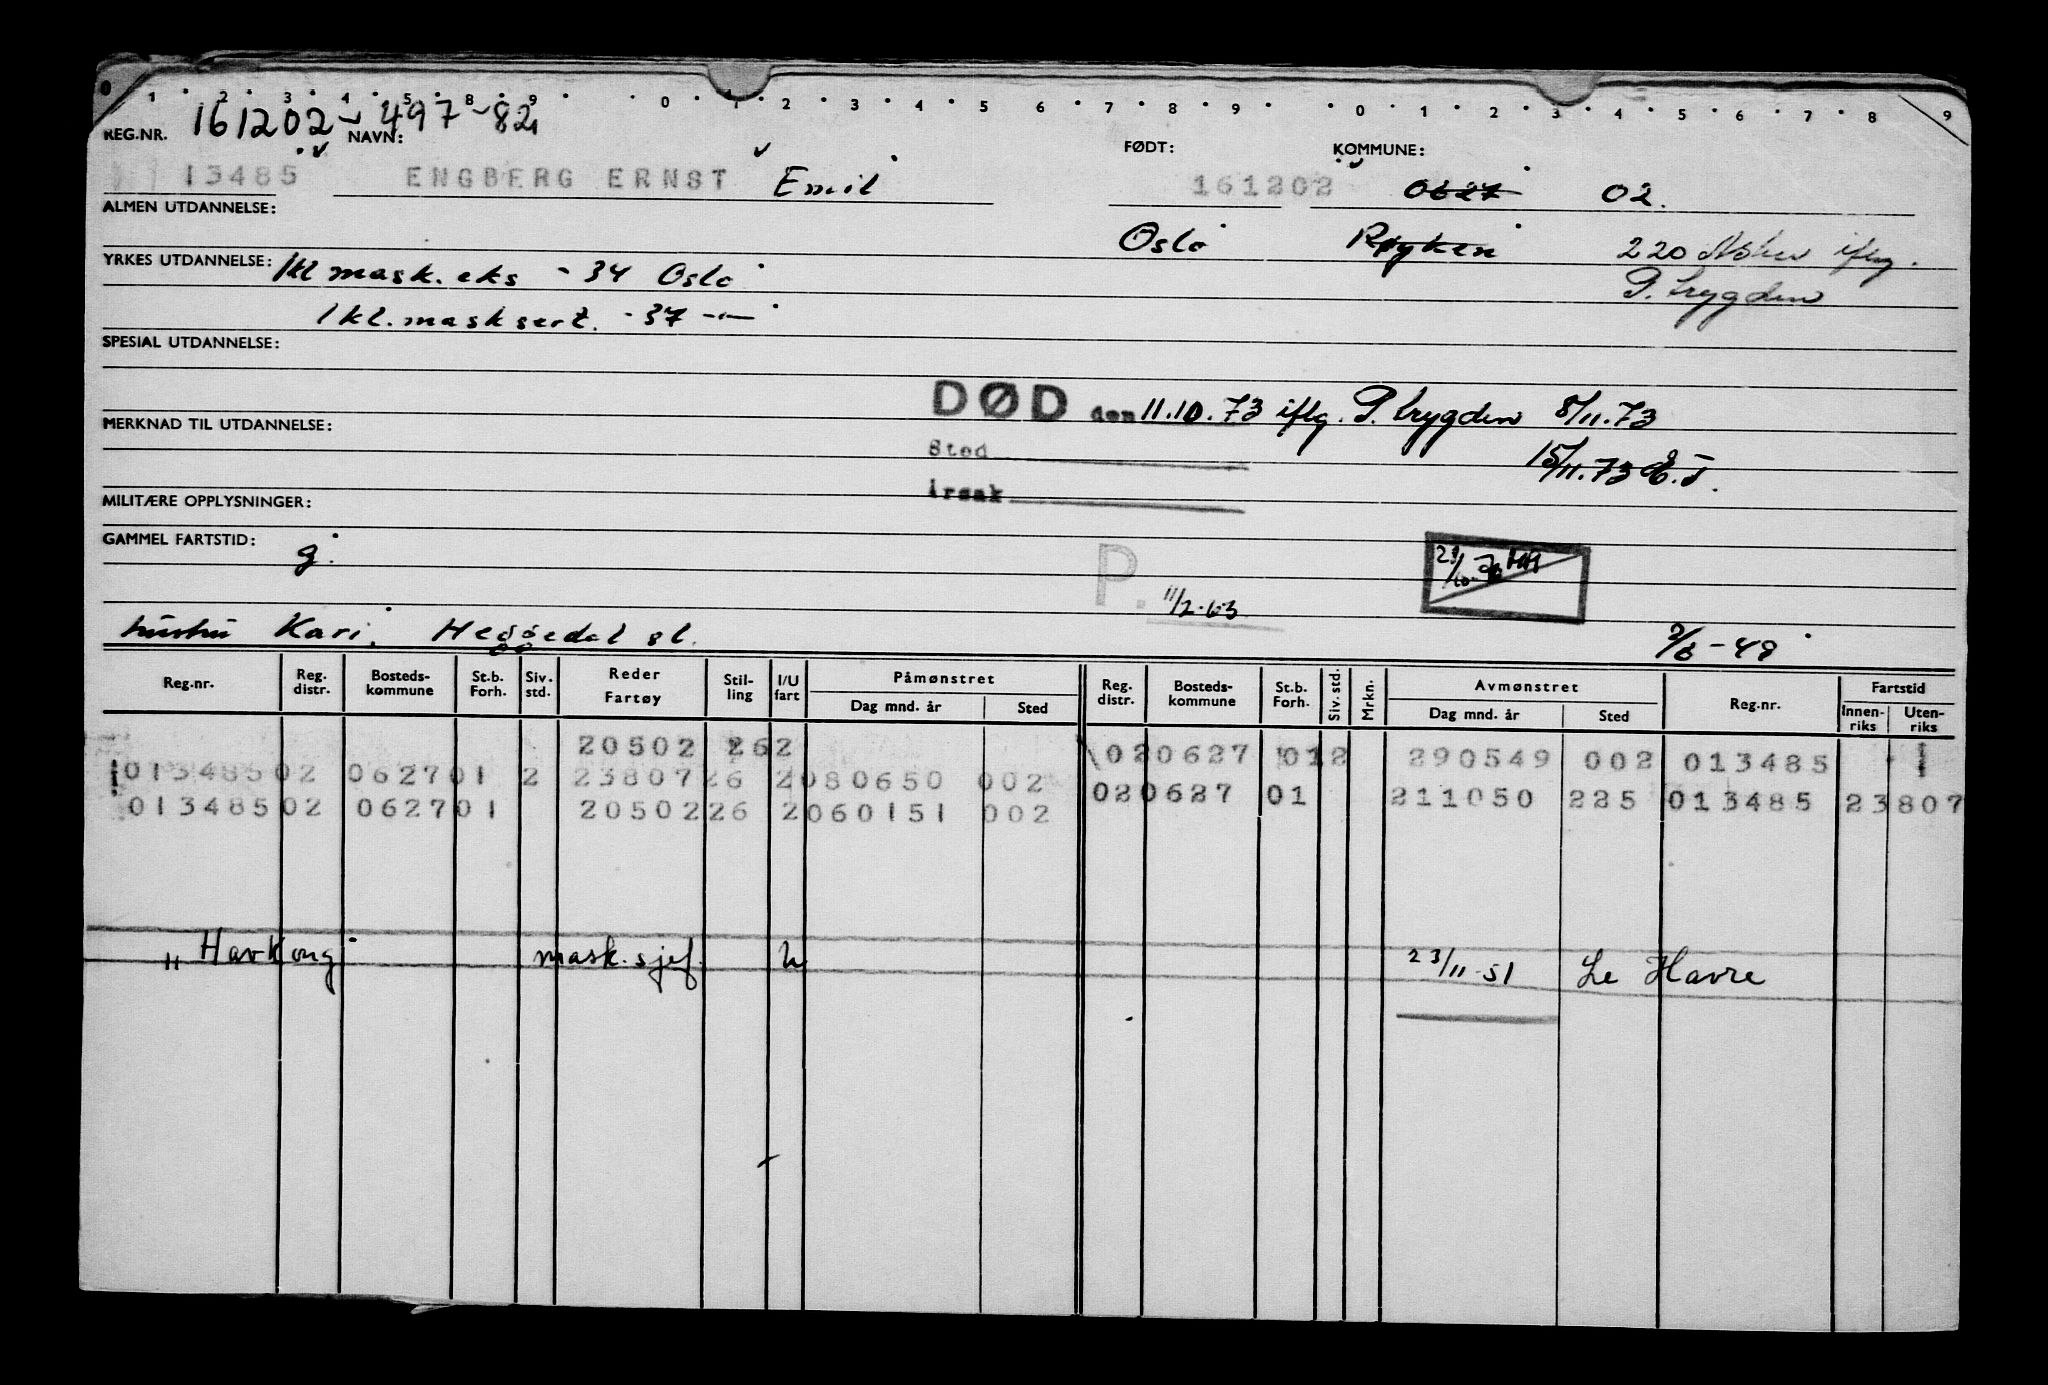 0 1 2 3 4 5 8 9 0 1 2 3 4 5 6 7 8 9 0 1 2 3 4 5 6 7 8 9
REG.NR. 161202 - 497-82 NAVN: FØDT: KOMMUNE:
13485 ENGBERG ERNST Emil 161202 0627 02.
ALMEN UTDANNELSE:
Oslo Røyken 220 Asker iflg.
YRKES UTDANNELSE: 1kl mask. eks - 34 Oslo P. trygden
1 kl. mask sert. - 37 -"-
SPESIAL UTDANNELSE:
DØD den 11.10.73 iflg. P. trygden 8/11.73
MERKNAD TIL UTDANNELSE:
Sted 15/11.73
Årsak
MILITÆRE OPPLYSNINGER:
GAMMEL FARTSTID: g.
P. 11/2-63
hustru Kari, Heggedal st. 2/6-48
Reg.nr. Reg. distr. Bosteds-kommune St.b. Forh. Siv. std. Reder Fartøy Stil-ling I/U fart Påmønstret Dag mnd. år Sted Reg. distr. Bosteds-kommune St.b. Forh. Siv. std. Mrkn. Avmønstret Dag mnd. år Sted Reg.nr. Fartstid Innen-riks Uten-riks
20502 262 020627 012 290549 002 013485 1
013485 02 0627 01 2 23807 26 2 080650 002 020627 01 211050 225 013485 23807
013485 02 0627 01 20502 26 2 060151 002
" Havkong mask.sjef. U 23/11-51 Le Havre